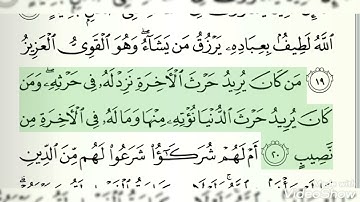 ٱللَّهُ لَطِيفُۢ بِعِبَادِهِۦ يَرۡزُقُ مَن يَشَآءُۖ وَهُوَ ٱلۡقَوِيُّ ٱلۡعَزِيزُ
١٩ مَن كَانَ يُرِيدُ حَرۡثَ ٱلۡأٓخِرَةِ نَزِدۡ لَهُۥ فِي حَرۡثِهِۦۖ وَمَن
كَانَ يُرِيدُ حَرۡثَ ٱلدُّنۡيَا نُؤۡتِهِۦ مِنۡهَا وَمَا لَهُۥ فِي ٱلۡأٓخِرَةِ مِن
نَّصِيبٍ ٢٠ أَمۡ لَهُمۡ شُرَكَٰٓؤُاْ شَرَعُواْ لَهُم مِّنَ ٱلدِّينِ
VideoShow